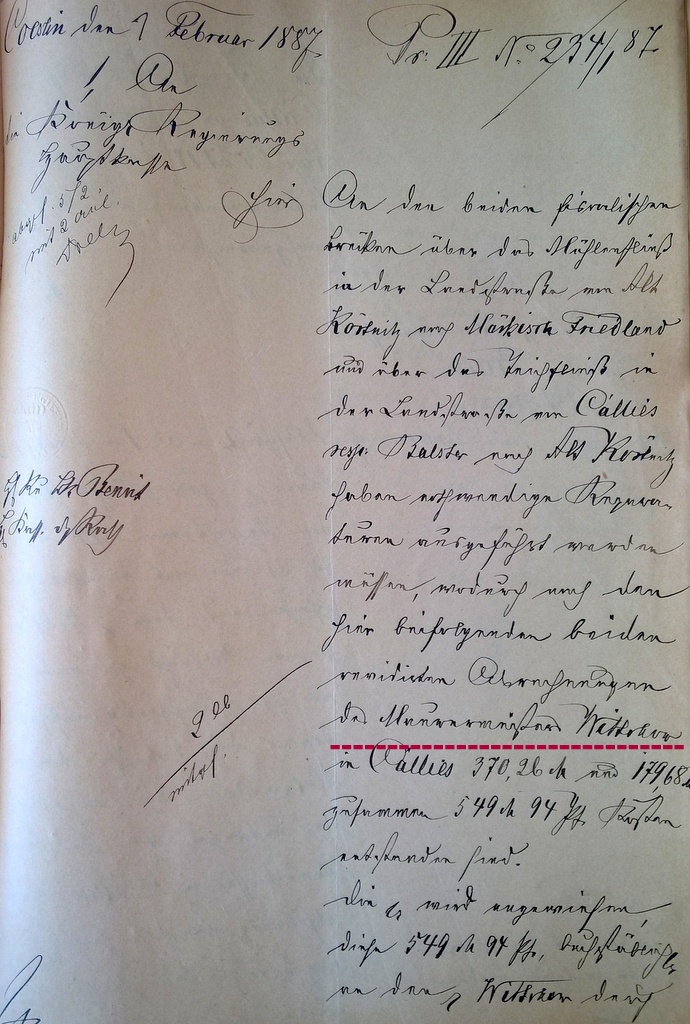 Coeslin den 7 Februar 1887
Pr: III No 234/1,87
1, An
die Königl Regierungs
Hauptkasse
hier
abgs. 5/2.
mit 2 anl.
An den beiden fiscalischen
Brücken über das Mühlenfließ
in der Landstraße von Alt
Körtnitz nach Märkisch Friedland
und über das Teichfließ in
der Landstraße von Callies
resp: Balster nach Alt Körtnitz
haben nothwendige Repara-
turen ausgeführt werden
müssen, wodurch nach den
hier beifolgenden beiden
revidirten Abrechnungen
des Maurermeisters Wittchow
in Callies 370,26 M und 179,68 M
zusammen 549 M 94 Pf Kosten
entstanden sind.
Die p wird angewiesen,
diese 549 M 94 Pf, buchstäblich p
an den p Wittchow durch